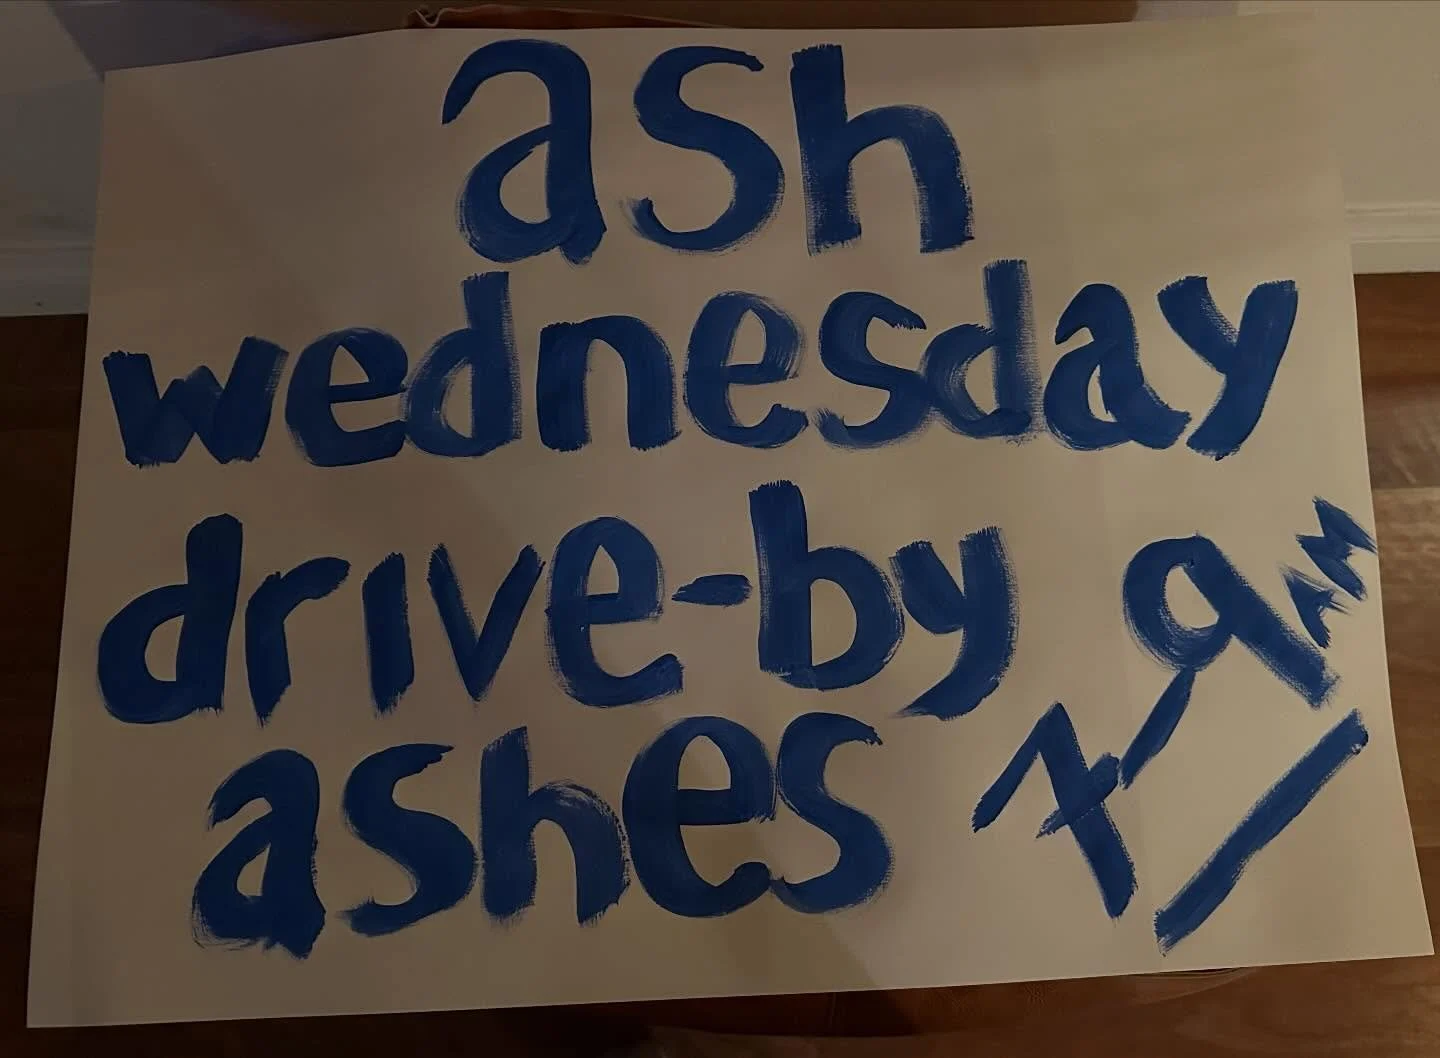 ash
wednesday
drive-by
ashes
7-9 AM